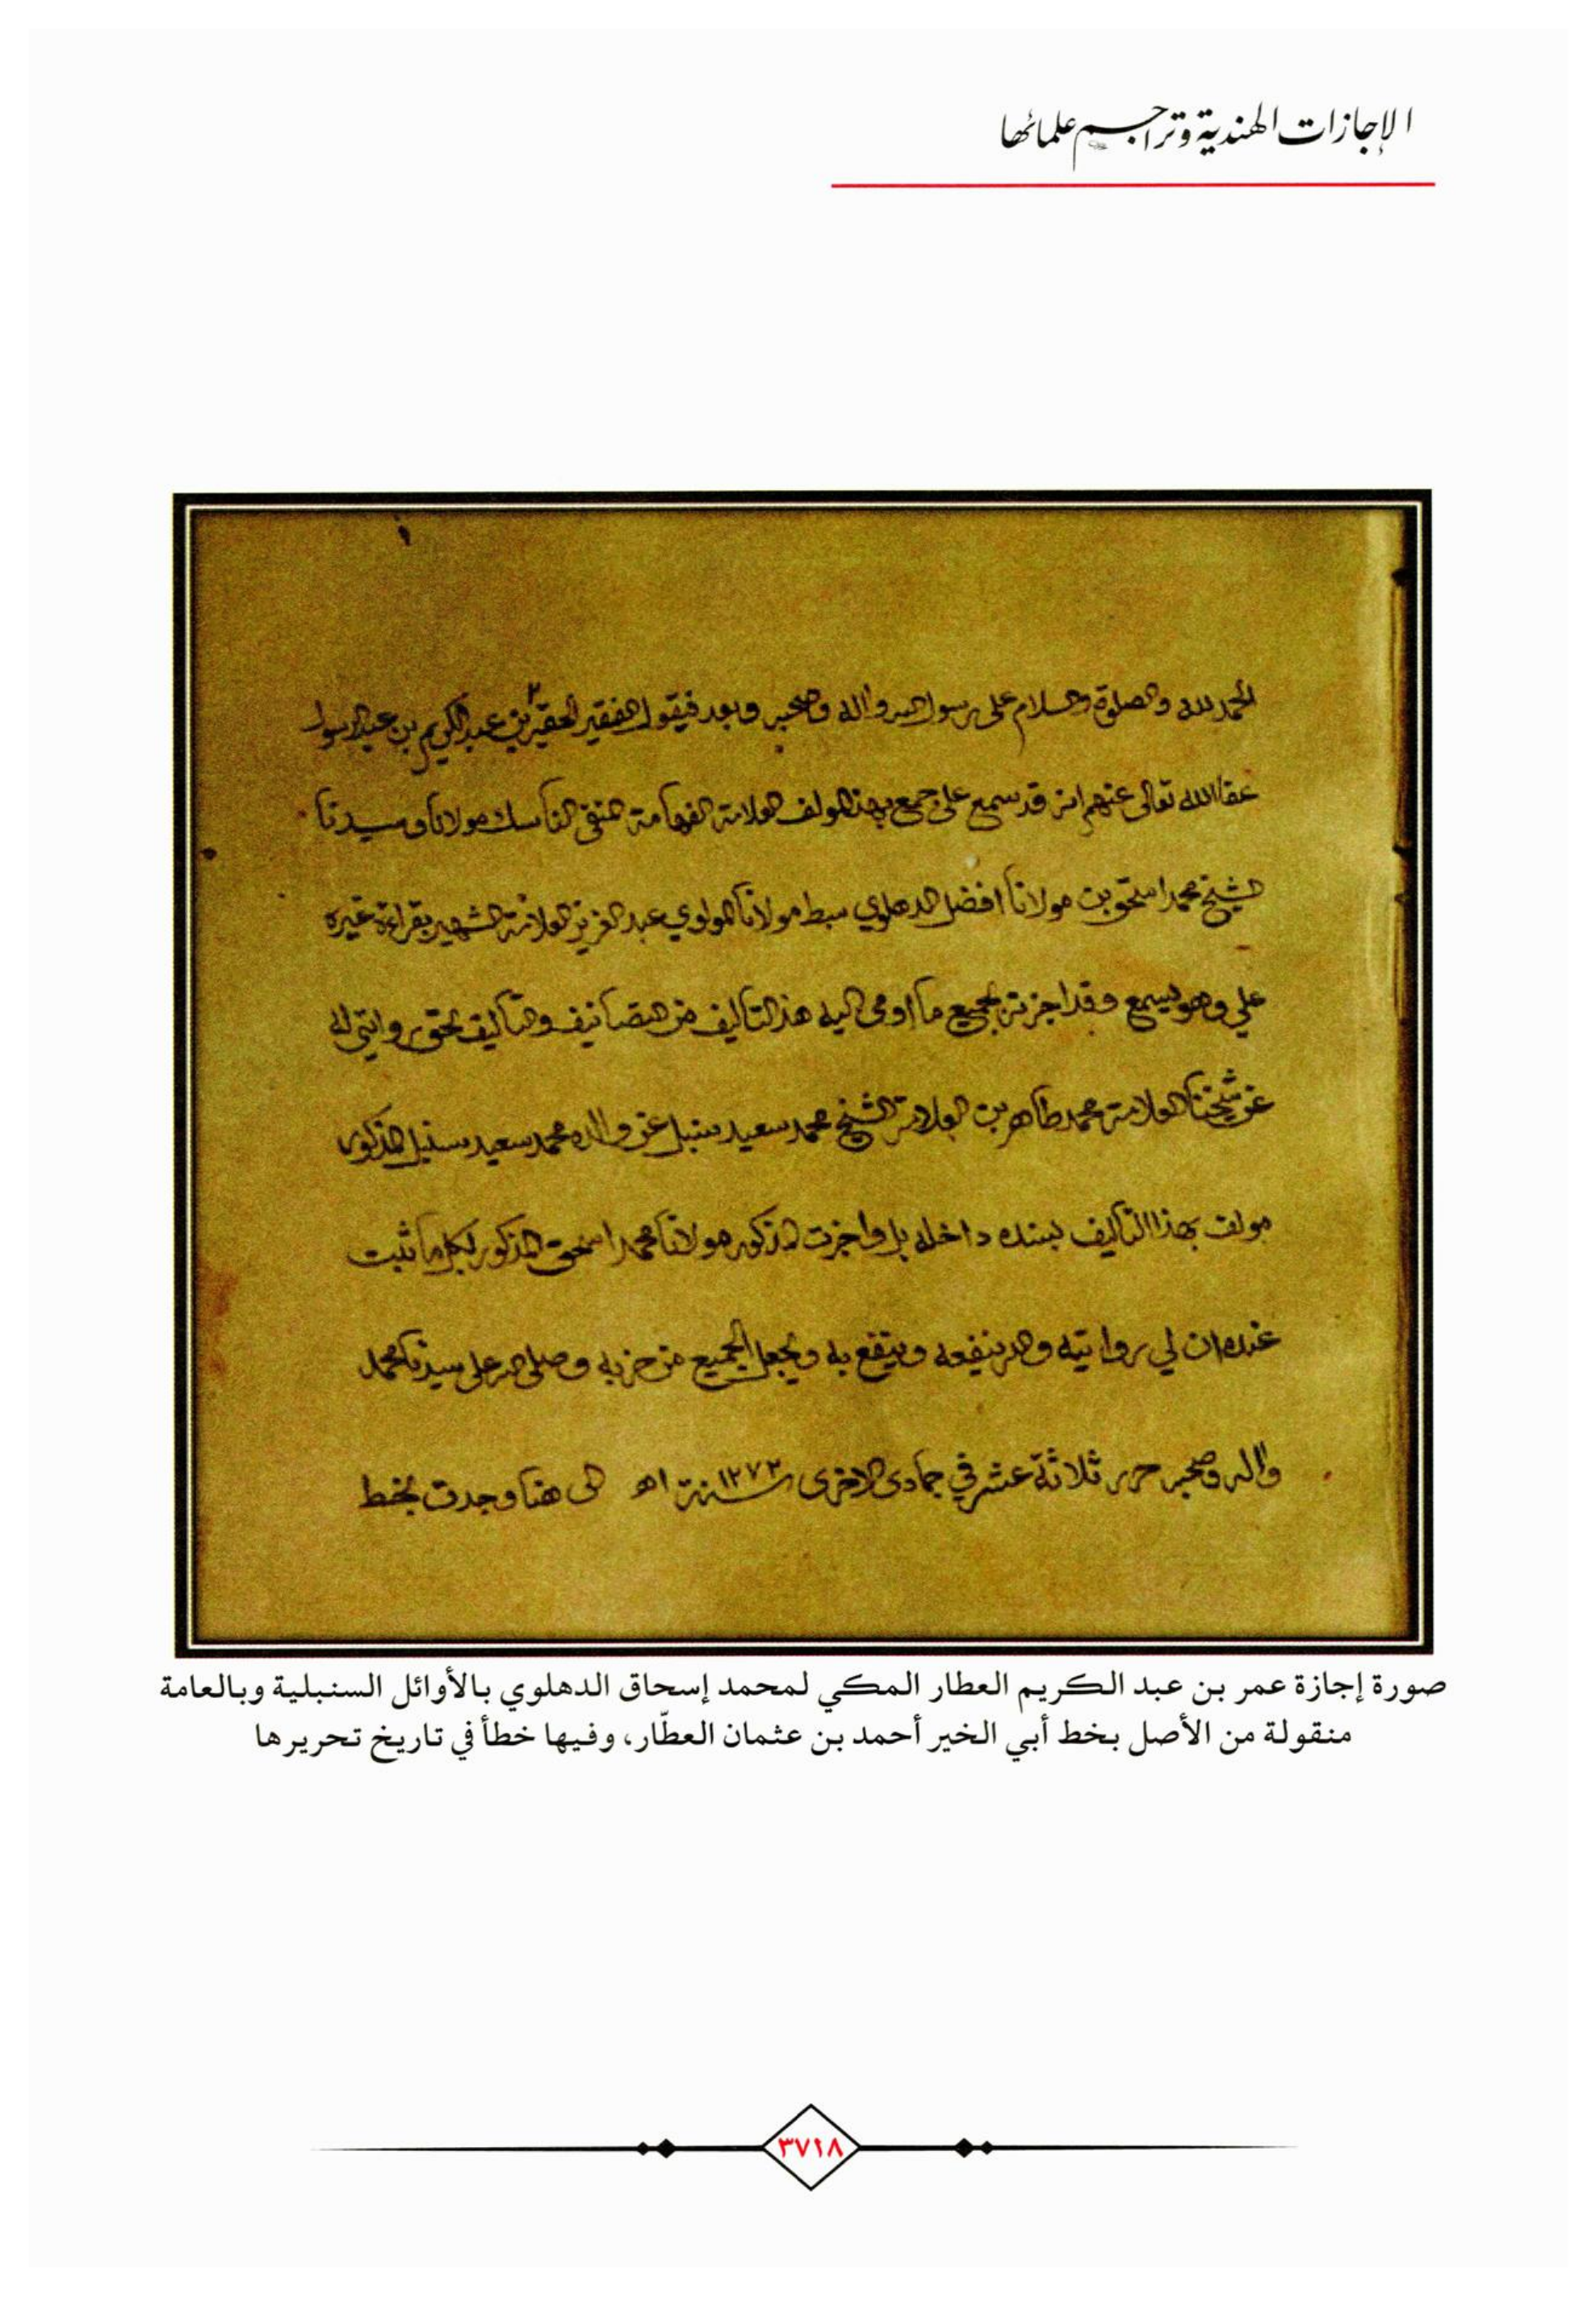 الإجازات الهندية وتراجم علمائها
الحمد لله والصلوة والسلام على رسول الله واله وصحبه وبعد فيقول الفقير الحقير بن عبد الكريم بن عبد الرسول
عفا الله تعالى عنهم انه قد سمع على جميع بهذا المولف العلامة الفهامة المتقي الناسك مولانا وسيدنا
الشيخ محمد اسحق بن مولانا افضل الدهلوي سبط مولانا المولوي عبد العزيز العلامة الشهير بقراءة غيره
علي وهو يسمع وقد اجزته بجميع ما اومى اليه هذا التاليف من التصانيف والتاليف بحق روايتي له
عن شيخنا العلامة محمد طاهر بن العلامة الشيخ محمد سعيد سنبل عن والده محمد سعيد سنبل المذكور
مولف بهذا التاليف بسنده داخله بل واجزت المذكور مولانا محمد اسحق المذكور بكل ما ثبت
عنده ان لي روايته والله ينفعه وينتفع به ويجعل الجميع من حزبه وصلى الله على سيدنا محمد
واله وصحبه حرر ثلاثة عشر في جمادى الاخرى سنة ١٢٧٣ اه الى هنا وجدت بخط
صورة إجازة عمر بن عبد الكريم العطار المكي لمحمد إسحاق الدهلوي بالأوائل السنبلية وبالعامة
منقولة من الأصل بخط أبي الخير أحمد بن عثمان العطّار، وفيها خطأ في تاريخ تحريرها
٣٧١٨